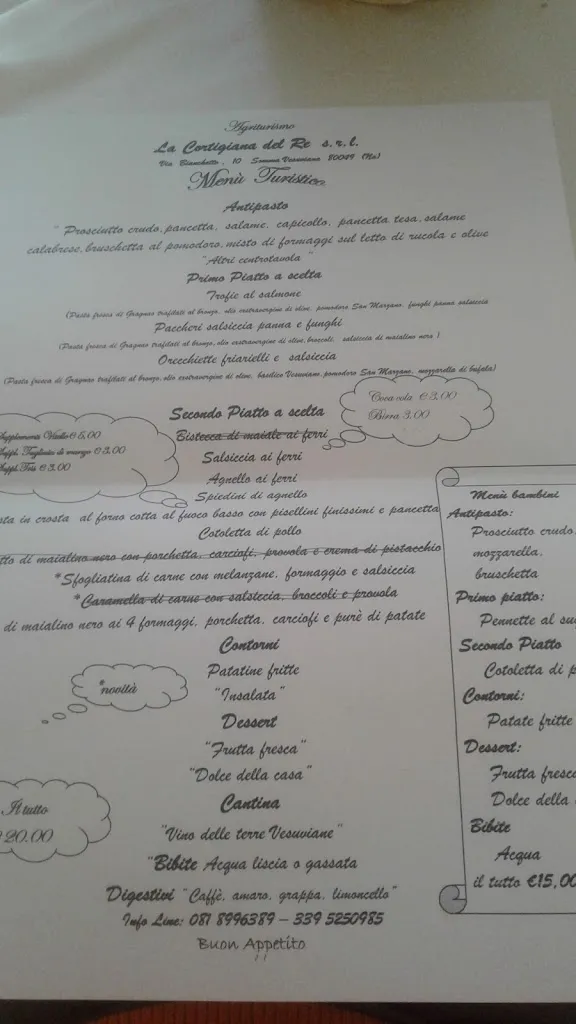 Agriturismo
La Cortigiana del Re s.r.l.
Via Bianchetto, 10 Somma Vesuviana 80049 (Na)
Menù Turistico
Antipasto
" Prosciutto crudo, pancetta, salame, capicollo, pancetta tesa, salame
calabrese, bruschetta al pomodoro, misto di formaggi sul letto di rucola e olive
"Altri centrotavola "
Primo Piatto a scelta
Trofie al salmone
(Pasta fresca di Gragnao trafilati al bronzo, olio extravergine di olive, pomodoro San Marzano, funghi panna salsiccia
Paccheri salsiccia panna e funghi
(Pasta fresca di Gragnao trafilati al bronzo, olio extravergine di olive, broccoli, salsiccia di maialino nero )
Orecchiette friarielli e salsiccia
(Pasta fresca di Gragnao trafilati al bronzo, olio extravergine di olive, basilico Vesuviano, pomodoro San Marzano, mozzarella di bufala)
Coca cola €3,00
Birra 3,00
€ 5,00
Suppl. Tagliata di manzo € 3,00
Suppl. Tris € 3,00
Secondo Piatto a scelta
Bistecca di maiale ai ferri
Salsiccia ai ferri
Agnello ai ferri
Spiedini di agnello
in crosta al forno cotta al fuoco basso con pisellini finissimi e pancetta
Cotoletta di pollo
di maialino nero con porchetta, carciofi, provola e crema di pistacchio
*Sfogliatina di carne con melanzane, formaggio e salsiccia
*Caramella di carne con salsiccia, broccoli e provola
di maialino nero ai 4 formaggi, porchetta, carciofi e purè di patate
Contorni
Patatine fritte
"Insalata"
*novità
Dessert
"Frutta fresca"
"Dolce della casa"
Cantina
Il tutto
20,00
"Vino delle terre Vesuviane"
"Bibite Acqua liscia o gassata
Digestivi "Caffè, amaro, grappa, limoncello"
Info Line: 081 8996389 – 339 5250985
Buon Appetito
Menù bambini
Antipasto:
Prosciutto crudo,
mozzarella,
bruschetta
Primo piatto:
Pennette al
Secondo Piatto
Cotoletta di
Contorni:
Patate fritte
Dessert:
Frutta fresca
Dolce della
Bibite
Acqua
il tutto €15,00